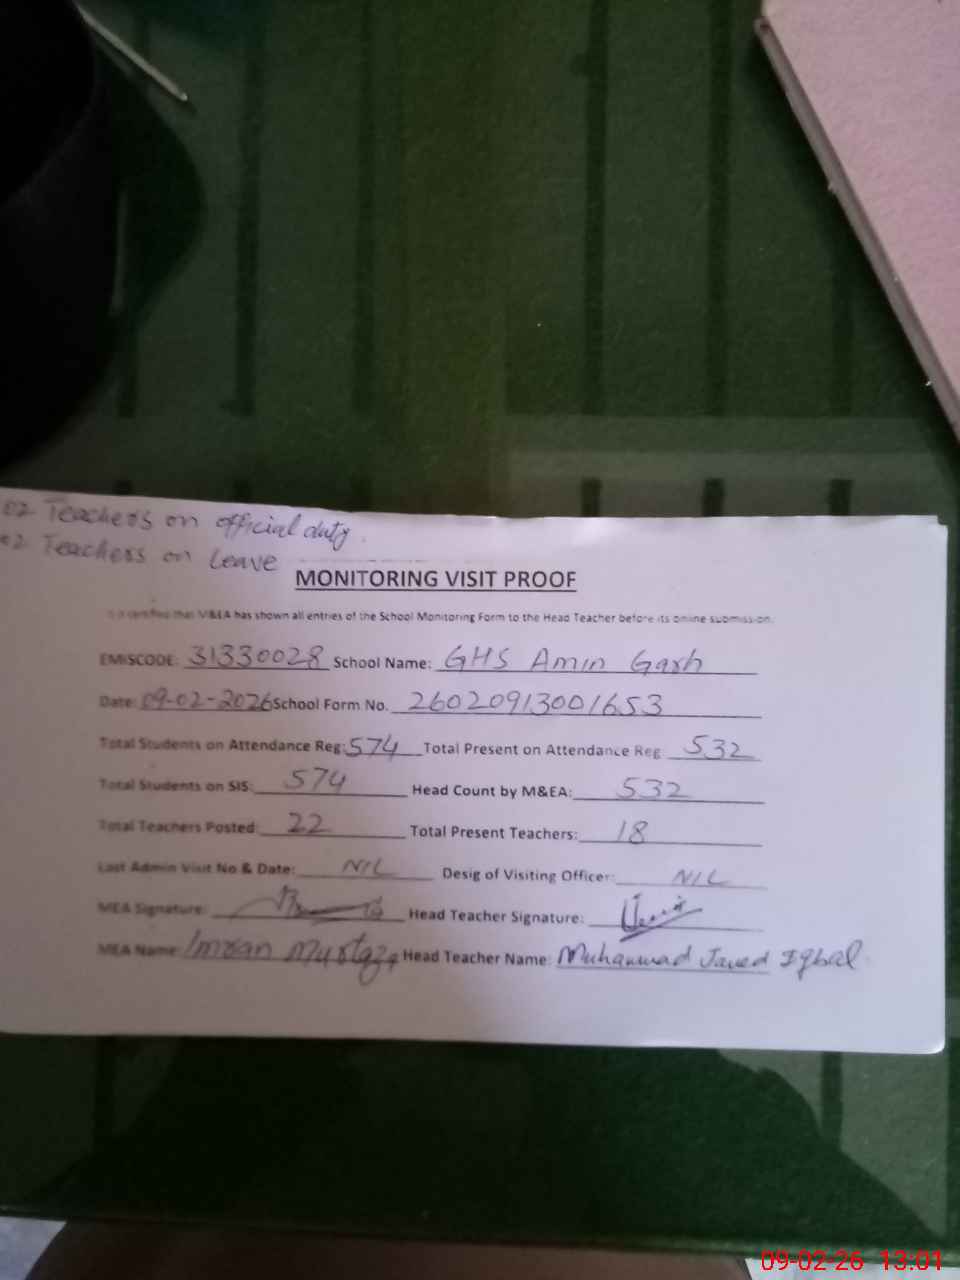 02 Teachers on official duty.
02 Teachers on Leave
MONITORING VISIT PROOF
It is certified that M&EA has shown all entries of the School Monitoring Form to the Head Teacher before its online submission.
EMISCODE: 31330028 School Name: GHS Amin Garh
Date: 09-02-2026 School Form No. 26020913001653
Total Students on Attendance Reg: 574 Total Present on Attendance Reg 532
Total Students on SIS: 574 Head Count by M&EA: 532
Total Teachers Posted: 22 Total Present Teachers: 18
Last Admin Visit No & Date: NIL Desig of Visiting Officer: NIL
MEA Signature: Head Teacher Signature:
MEA Name: Imran Murtaza Head Teacher Name: Muhammad Javed Iqbal
09-02-26 13:01